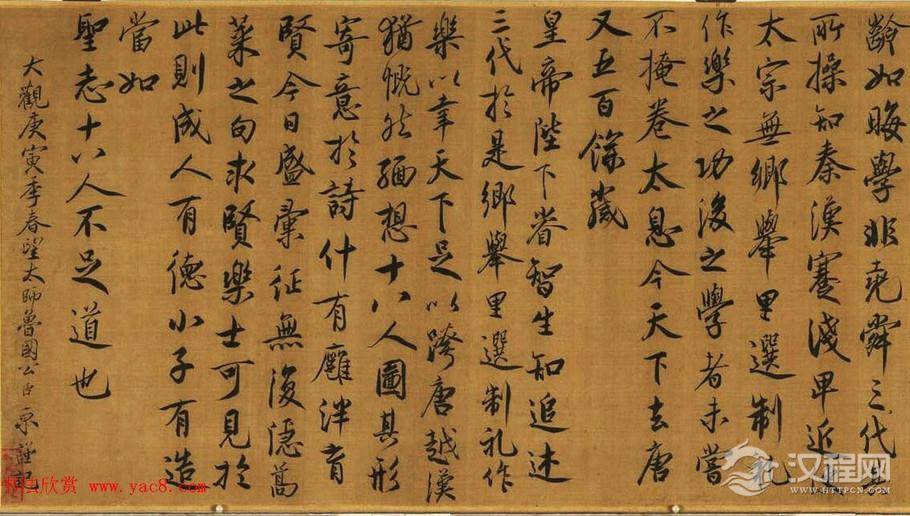 齡如晦學非堯舜三代
所操知秦漢蹇淺卑近
太宗無鄉舉里選制礼
作樂之功後之學者未嘗
不掩卷太息今天下去唐
又五百餘歲
皇帝陛下睿智生知追述
三代於是鄉舉里選制礼作
樂以幸天下足以跨唐越漢
猶慨然緬想十八人圖其形
寄意於詩什有廱泮育
賢今日盛彙征無復隱蒿
萊之句求賢樂士可見於
此則成人有德小子有造
當如
聖志十八人不足道也
大觀庚寅季春望太師魯國公臣京謹記
书法欣赏 www.yac8.com
汉程网
HTTPCN.COM